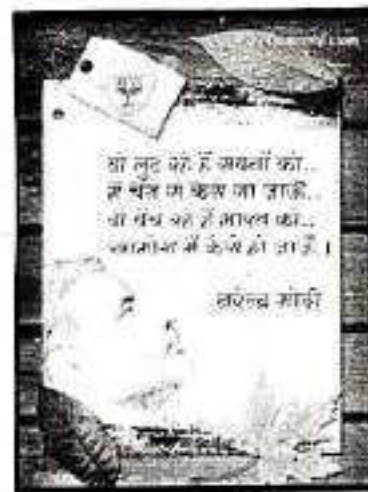 वो लुट रहे हैं सपनों को..
मैं चैन से कैसे सो जाऊँ..
वो बेच रहे हैं भारत को..
खामोश मैं कैसे हो जाऊँ।
नरेन्द्र मोदी